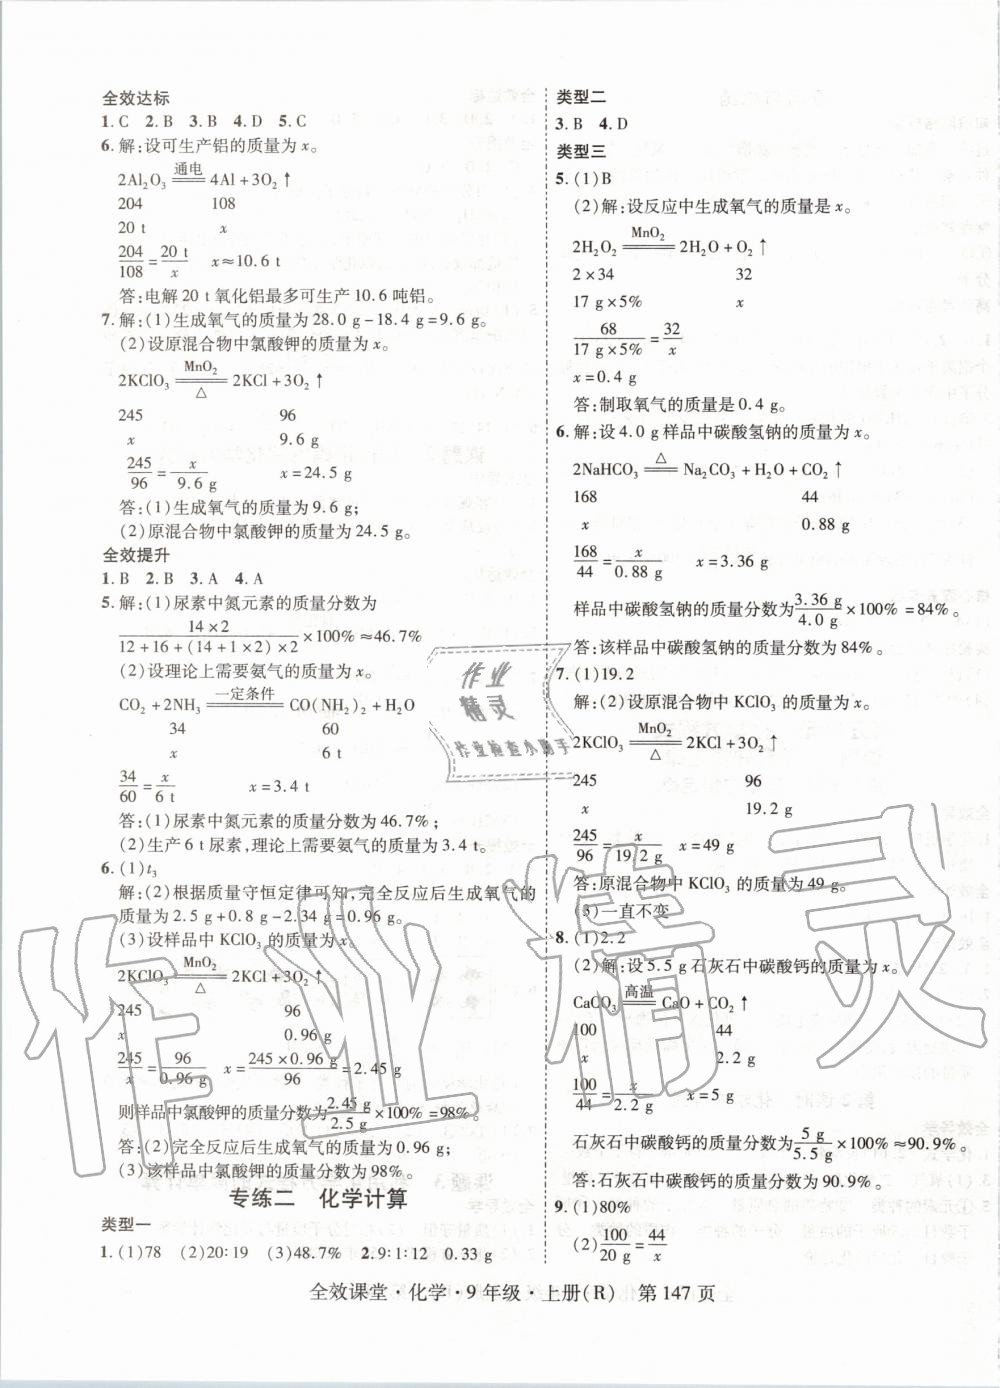 全效达标
1. C 2. B 3. B 4. D 5. C
6. 解:设可生产铝的质量为 x。
2Al₂O₃ =通电= 4Al+3O₂↑
204 108
20 t x
204/108 = 20 t/x x≈10.6 t
答:电解20 t氧化铝最多可生产10.6吨铝。
7. 解:(1)生成氧气的质量为28.0 g-18.4 g=9.6 g。
(2)设原混合物中氯酸钾的质量为 x。
2KClO₃ =MnO₂/△= 2KCl+3O₂↑
245 96
x 9.6 g
245/96 = x/9.6 g x=24.5 g
答:(1)生成氧气的质量为9.6 g;
(2)原混合物中氯酸钾的质量为24.5 g。
全效提升
1. B 2. B 3. A 4. A
5. 解:(1)尿素中氮元素的质量分数为
14×2/[12+16+(14+1×2)×2] ×100%≈46.7%
(2)设理论上需要氨气的质量为 x。
CO₂+2NH₃ =一定条件= CO(NH₂)₂+H₂O
34 60
x 6 t
34/60 = x/6 t x=3.4 t
答:(1)尿素中氮元素的质量分数为46.7%;
(2)生产6 t尿素,理论上需要氨气的质量为3.4 t。
6. (1)t₃
解:(2)根据质量守恒定律可知,完全反应后生成氧气的
质量为2.5 g+0.8 g-2.34 g=0.96 g。
(3)设样品中KClO₃的质量为 x。
2KClO₃ =MnO₂/△= 2KCl+3O₂↑
245 96
x 0.96 g
245/x = 96/0.96 g x = 245×0.96 g/96 = 2.45 g
则样品中氯酸钾的质量分数为 2.45 g/2.5 g ×100%=98%。
答:(2)完全反应后生成氧气的质量为0.96 g;
(3)该样品中氯酸钾的质量分数为98%。
专练二 化学计算
类型一
1. (1)78 (2)20:19 (3)48.7% 2. 9:1:12 0.33 g
类型二
3. B 4. D
类型三
5. (1)B
(2)解:设反应中生成氧气的质量是 x。
2H₂O₂ =MnO₂= 2H₂O+O₂↑
2×34 32
17 g×5% x
68/17 g×5% = 32/x
x=0.4 g
答:制取氧气的质量是0.4 g。
6. 解:设4.0 g样品中碳酸氢钠的质量为 x。
2NaHCO₃ =△= Na₂CO₃+H₂O+CO₂↑
168 44
x 0.88 g
168/44 = x/0.88 g x=3.36 g
样品中碳酸氢钠的质量分数为 3.36 g/4.0 g ×100%=84%。
答:该样品中碳酸氢钠的质量分数为84%。
7. (1)19.2
解:(2)设原混合物中KClO₃的质量为 x。
2KClO₃ =MnO₂/△= 2KCl+3O₂↑
245 96
x 19.2 g
245/96 = x/19.2 g x=49 g
答:原混合物中KClO₃的质量为49 g。
(3)一直不变
8. (1)2.2
(2)解:设5.5 g石灰石中碳酸钙的质量为 x。
CaCO₃ =高温= CaO+CO₂↑
100 44
x 2.2 g
100/44 = x/2.2 g x=5 g
石灰石中碳酸钙的质量分数为 5 g/5.5 g ×100%≈90.9%。
答:石灰石中碳酸钙的质量分数为90.9%。
9. (1)80%
(2) 100/z = 44/20
全效课堂·化学·9年级·上册(R) 第147页
作业
精灵
作业检查小助手
作业精灵